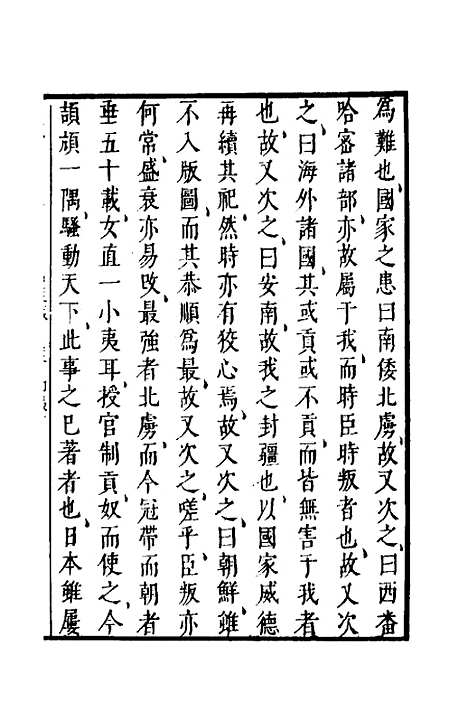 為難也國家之患曰南倭北虜故又次之曰西畨
哈宻諸部亦故屬于我而時臣時叛者也故又次
之曰海外諸國其或貢或不貢而皆無害于我者
也故又次之曰安南故我之封疆也以國家威德
再續其祀然時亦有狡心焉故又次之曰朝鮮雖
不入版圖而其恭順為最故又次之嗟乎臣叛亦
何常盛衰亦易攺最強者北虜而今冠帶而朝者
垂五十載女直一小夷耳授官制貢奴而使之今
頡頏一隅騷動天下此事之已著者也日本雖屢